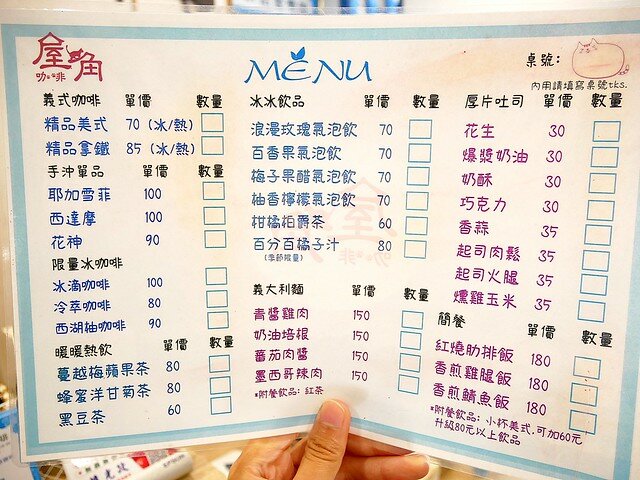 屋角
咖啡
MENU
桌號:
內用請填寫桌號tks.
義式咖啡 單價 數量
精品美式 70 (冰/熱)
精品拿鐵 85 (冰/熱)
手沖單品 單價 數量
耶加雪菲 100
西達摩 100
花神 90
限量冰咖啡
冰滴咖啡 100
冷萃咖啡 80
西湖柚咖啡 90
暖暖熱飲 單價 數量
蔓越梅蘋果茶 80
蜂蜜洋甘菊茶 80
黑豆茶 60
冰冰飲品 單價 數量
浪漫玫瑰氣泡飲 70
百香果氣泡飲 70
梅子果醋氣泡飲 70
柚香檸檬氣泡飲 70
柑橘伯爵茶 60
百分百橘子汁 80
(季節限量)
義大利麵 單價 數量
青醬雞肉 150
奶油培根 150
蕃茄肉醬 150
墨西哥辣肉 150
*附餐飲品: 紅茶
厚片吐司 單價 數量
花生 30
爆漿奶油 30
奶酥 30
巧克力 30
香蒜 35
起司肉鬆 35
起司火腿 35
燻雞玉米 35
簡餐 單價 數量
紅燒肋排飯 180
香煎雞腿飯 180
香煎鯖魚飯 180
*附餐飲品: 小杯美式,可加60元
升級80元以上飲品